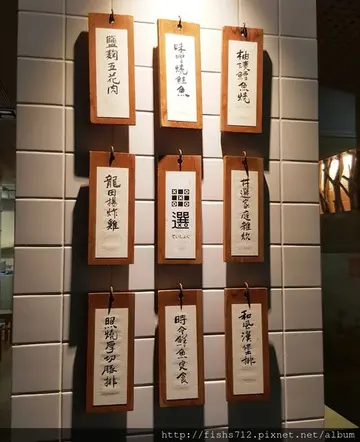 鹽麴五花肉
味噌燒鮭魚
柚漬魚燒
龍田揚炸雞
選
ていしょく
井選家庭雜炊
照燒厚切豚排
時令鮮魚定食
和風漢堡排
http://fishs712.pixnet.net/album